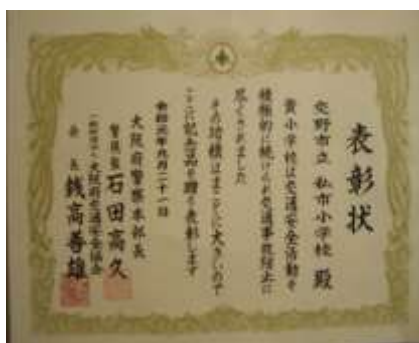 表彰状
交野市立 私市小学校 殿
貴小学校は交通安全活動を
積極的に続けられ交通事故防止に
尽くされました
その功績はまことに大きいので
ここに記念品を贈り表彰します
令和元年九月二十一日
大阪府警察本部長
警視監 石田高久
一般財団法人 大阪府交通安全協会
会長 錢高善雄